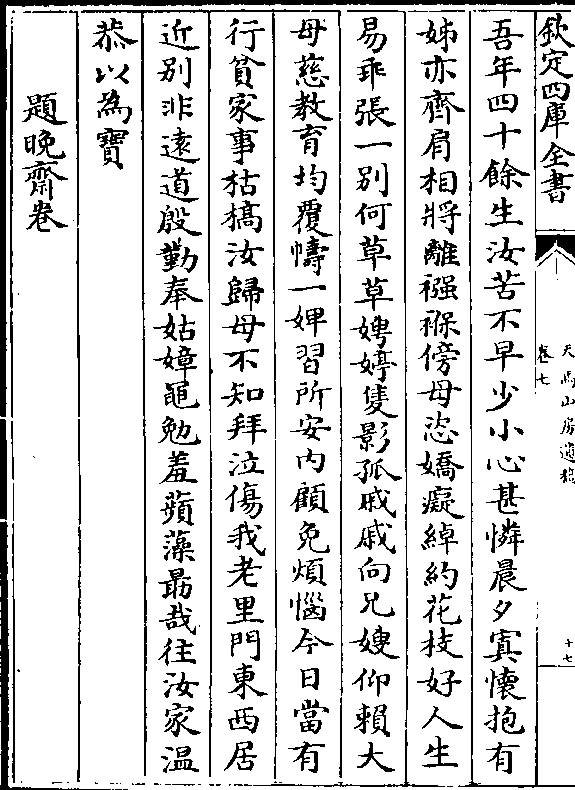 欽定四庫全書
天馬山房遺稿
卷七
十七
吾年四十餘生汝苦不早少小心甚憐晨夕寘懷抱有
姊亦齊肩相將離襁褓傍母恣嬌癡綽約花枝好人生
易乖張一別何草草娉婷隻影孤戚戚向兄嫂仰賴大
母慈教育均覆幬一婢習所安内顧免煩惱今日當有
行貧家事枯槁汝歸母不知拜泣傷我老里門東西居
近別非遠道殷勤奉姑嫜黽勉羞蘋藻勗哉往汝家温
恭以為寶
題晚齋卷